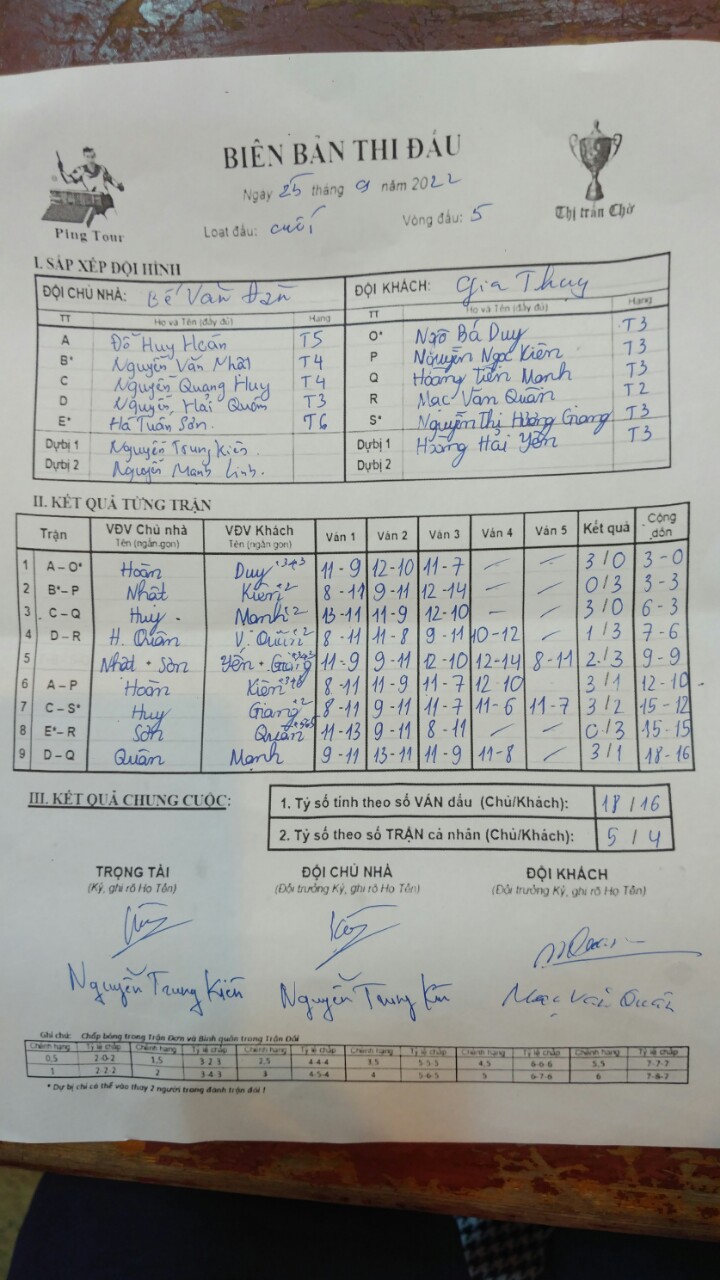 BIÊN BẢN THI ĐẤU
Ngày 25 tháng 9 năm 2022
Ping Tour
Loạt đấu: cuối Vòng đấu: 5
Thị trấn Chờ
I. SẮP XẾP ĐỘI HÌNH
ĐỘI CHỦ NHÀ: Bế Văn Đàn ĐỘI KHÁCH: Gia Thụy
TT Họ và Tên (đầy đủ) Hạng TT Họ và Tên (đầy đủ) Hạng
A Đỗ Huy Hoàn T5 O* Ngô Bá Duy T3
B* Nguyễn Văn Nhất T4 P Nguyễn Ngọc Kiên T3
C Nguyễn Quang Huy T4 Q Hoàng Tiến Mạnh T3
D Nguyễn Hải Quân T3 R Mạc Văn Quân T2
E* Hà Tuấn Sơn. T6 S* Nguyễn Thị Hương Giang T3
Dự bị 1 Nguyễn Trung Kiên Dự bị 1 Hoàng Hải Yến T3
Dự bị 2 Nguyễn Mạnh Linh. Dự bị 2
II. KẾT QUẢ TỪNG TRẬN
Trận VĐV Chủ nhà VĐV Khách Ván 1 Ván 2 Ván 3 Ván 4 Ván 5 Kết quả Cộng dồn
Tên (ngắn gọn) Tên (ngắn gọn)
1 A – O* Hoàn Duy +343 11-9 12-10 11-7 — — 3/0 3-0
2 B* – P Nhất Kiên +2 8-11 9-11 12-14 — — 0/3 3-3
3 C – Q Huy. Mạnh +2 13-11 11-9 12-10 — — 3/0 6-3
4 D – R H. Quân V. Quân +2 8-11 11-8 9-11 10-12 — 1/3 7-6
5 Nhất + Sơn Yến + Giang 11-9 9-11 12-10 12-14 8-11 2/3 9-9
6 A – P Hoàn Kiên +343 8-11 11-9 11-7 12-10 3/1 12-10
7 C – S* Huy Giang +2 8-11 9-11 11-7 11-6 11-7 3/2 15-12
8 E* – R Sơn Quân +565 11-13 9-11 8-11 — — 0/3 15-15
9 D – Q Quân Mạnh 9-11 13-11 11-9 11-8 — 3/1 18-16
III. KẾT QUẢ CHUNG CUỘC:
1. Tỷ số tính theo số VÁN đấu (Chủ/Khách): 18/16
2. Tỷ số theo số TRẬN cá nhân (Chủ/Khách): 5/4
TRỌNG TÀI ĐỘI CHỦ NHÀ ĐỘI KHÁCH
(Ký, ghi rõ Họ Tên) (Đội trưởng Ký, ghi rõ Họ Tên) (Đội trưởng Ký, ghi rõ Họ Tên)
Nguyễn Trung Kiên Nguyễn Trung Kiên Mạc Văn Quân
Ghi chú: Chấp bóng trong Trận Đơn và Bình quân trong Trận Đôi
Chênh hạng Tỷ lệ chấp Chênh hạng Tỷ lệ chấp Chênh hạng Tỷ lệ chấp Chênh hạng Tỷ lệ chấp Chênh hạng Tỷ lệ chấp Chênh hạng Tỷ lệ chấp
0,5 2-0-2 1,5 3-2-3 2,5 4-4-4 3,5 5-5-5 4,5 6-6-6 5,5 7-7-7
1 2-2-2 2 3-4-3 3 4-5-4 4 5-6-5 5 6-7-6 6 7-8-7
* Dự bị chỉ có thể vào thay 2 người trong đánh trận đôi !